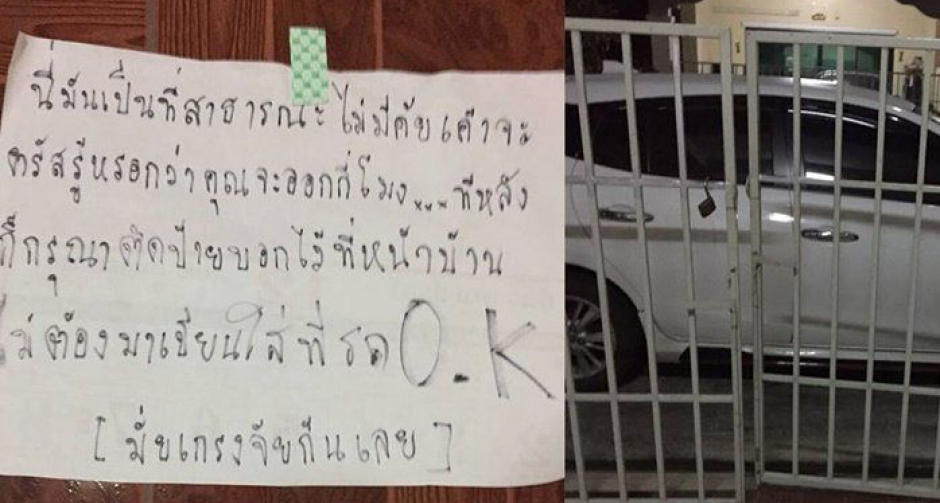 นี่มันเป็นที่สาธารณะ ไม่มีคัยเค้าจะ
ตรัสรู้หรอกว่าคุณจะออกกี่โมง... ทีหลัง
ก็กรุณาติดป้ายบอกไว้ที่หน้าบ้าน
ไม่ต้องมาเขียนใส่ที่รถ O.K
[ มั่ยเกรงจัยกันเลย ]